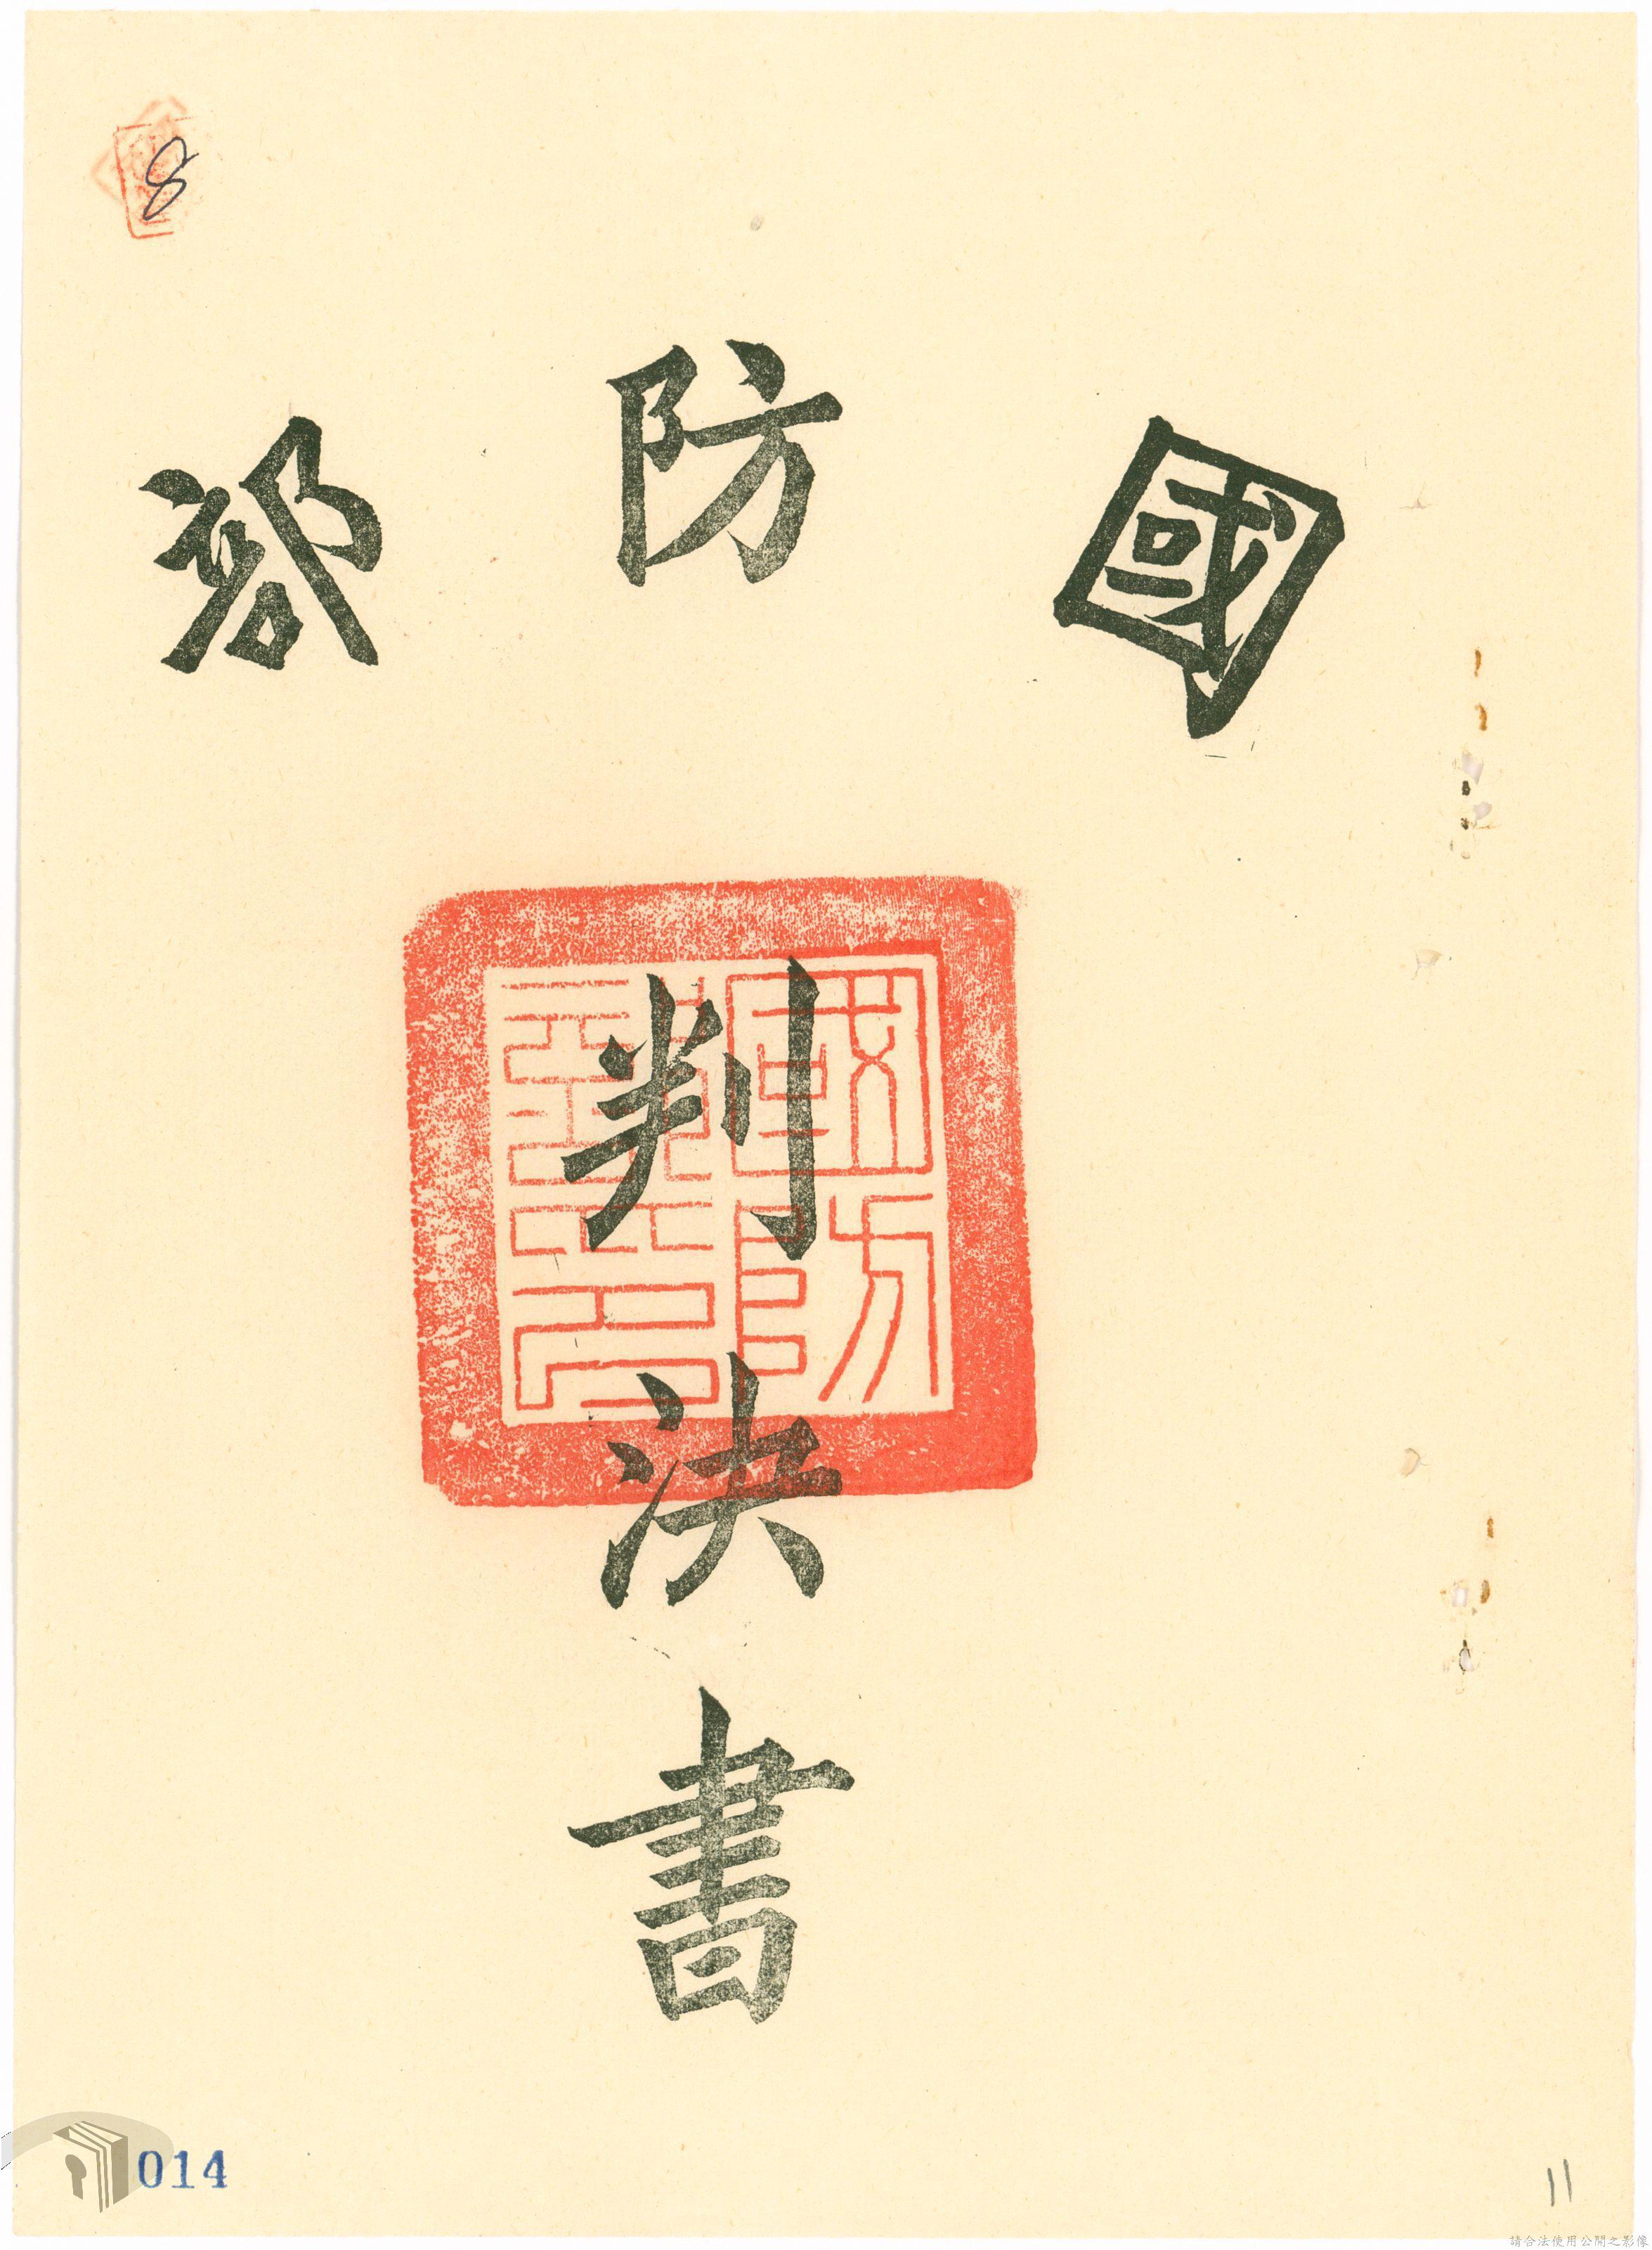 8
國防部
判決書
014
11
請合法使用公開之影像